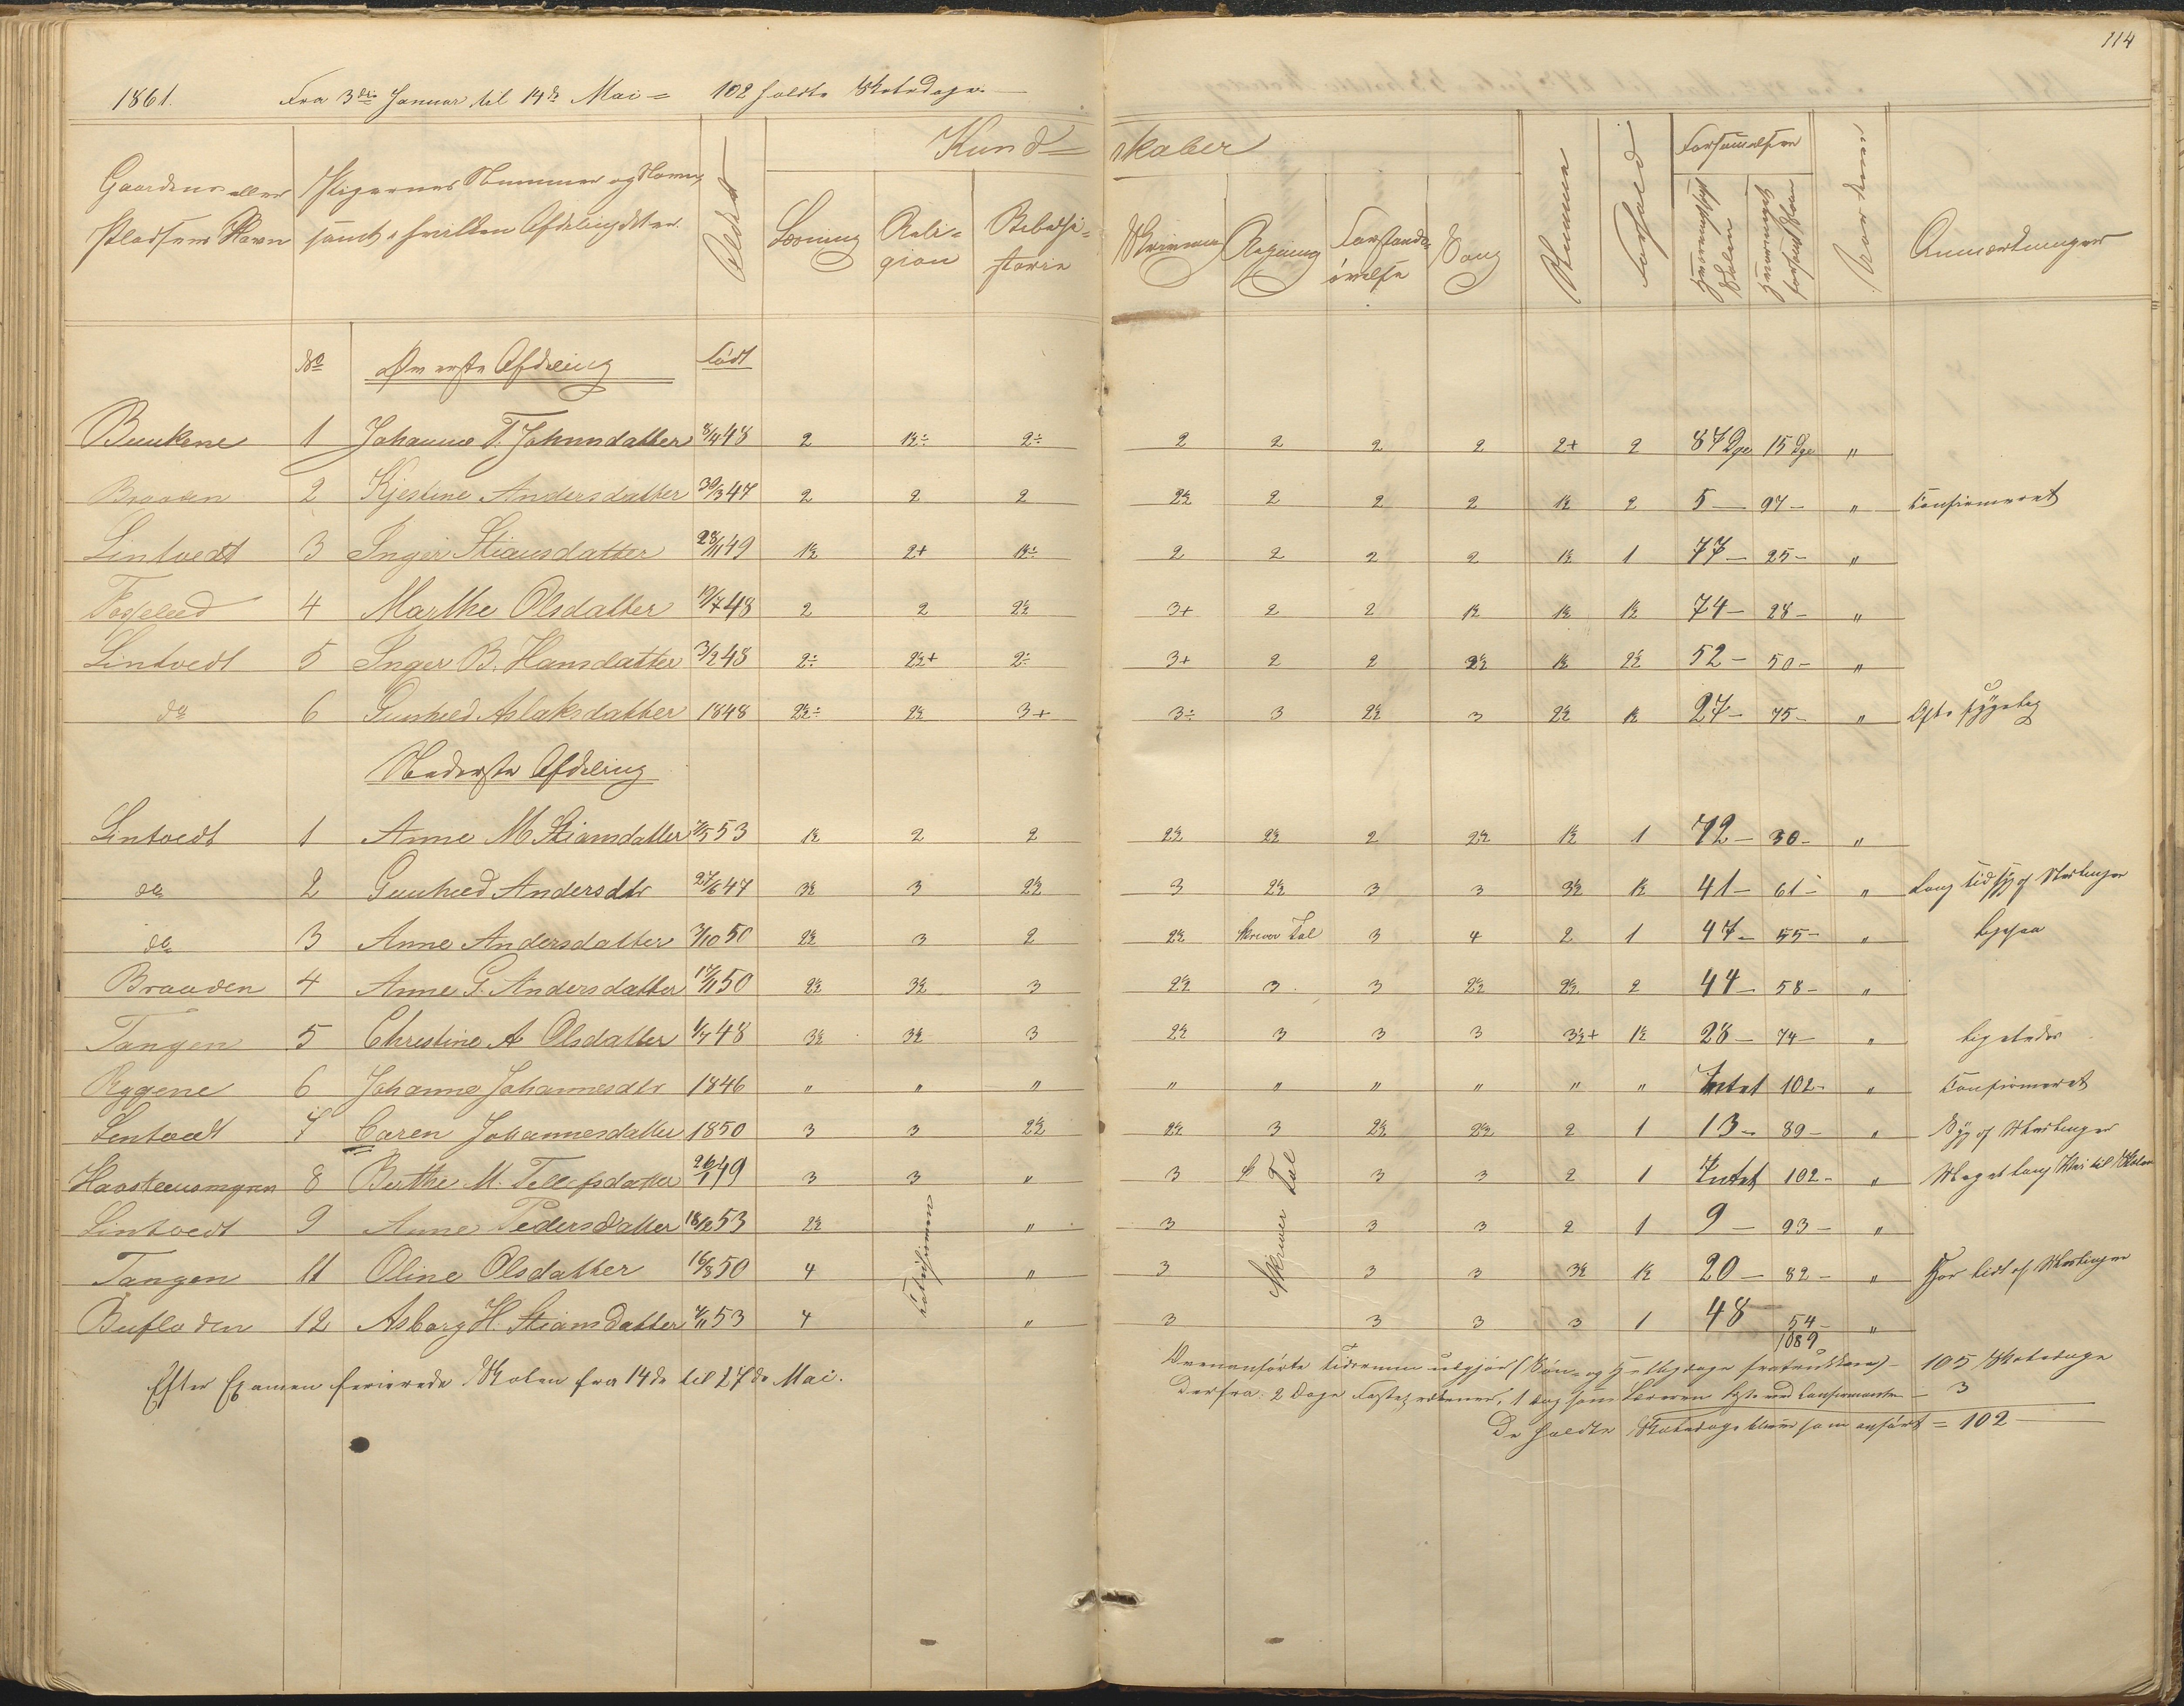 114
1861. Fra 3die Januar til 14de Mai = 102 holdte Skoledage.
Gaardens eller Pladsens Navn
Pigernes Nummer og Navn, samt i hvilken Afdeling de er.
Alder
Kundskaber
Læsning
Religion
Bibelhistorie
Skrivning
Regning
Forstandsøvelse
Sang
Nemme
Forhold
Forsømmelser
Anmærkninger
No Øverste Afdeling Født
Buukene 1 Johanne T. Johnsdatter 8/4 48 2 1½÷ 2÷ 2 2 2 2 2+ 2 87 Dge 15 Dge "
Braaden 2 Kjestine Andersdatter 30/3 47 2 2 2 2½ 2 2 2 1½ 2 5 — 97 — " Confirmeret
Lintvedt 3 Inger Stiansdatter 28/11 49 1½ 2+ 1½÷ 2 2 2 2 1½ 1 77 — 25 — "
4 Marthe Olsdatter 19/7 48 2 2 2½ 3+ 2 2 1½ 1½ 1½ 74 — 28 — "
Lintvedt 5 Inger B. Hansdatter 3/2 48 2÷ 2½+ 2÷ 3+ 2 2 2½ 1½ 2½ 52 — 50 — "
do 6 Gunhild Aslaksdatter 1848 2½÷ 2½ 3+ 3÷ 3 2½ 3 2½ 1½ 27 — 75 — " Ofte sygelig
Nederste Afdeling
Lintvedt 1 Anne M Stiansdatter 53 1½ 2 2 2½ 2½ 2 2½ 1½ 1 72 — 30 — "
do 2 Gunhild Andersdtr 27/6 47 3½ 3 2½ 3 2½ 3 3 3½ 1½ 41 — 61 — " Lang Tid syg af Mæslinger
do 3 Anne Andersdatter 7/10 50 2½ 3 2 2½ Skriver Tal 3 4 2 1 47 — 55 — " ligesaa
Braaden 4 Anne G. Andersdatter 17/11 50 2½ 3½ 3 2½ 3 3 2½ 2½ 2 44 — 58 — "
Tangen 5 Christine A Olsdatter 1/7 48 3½ 3½ 3 2½ 3 3 3 3½+ 1½ 28 — 74 — " ligeledes
Ryggene 6 Johanne Johannesdtr 1846 " " " " " " " " " Intet 102 — " Confirmeret
Lintvedt 7 Caren Johannesdatter 1850 3 3 2½ 2½ 3 2½ 2½ 2 1 13 — 89 — " Syg af Mæslinger
8 Berthe M. Tellefsdatter 26/1 49 3 3 " 3 3 3 2 1 Intet 102 — " Meget lang Vei til Skolen
Lintvedt 9 Anne Pedersdatter 18/12 53 2½ " 3 3 3 2 1 9 — 93 — "
Tangen 11 Oline Olsdatter 16/8 50 4 " 3 3 3 3½ 1½ 20 — 82 — " Har lidt af Mæslinger
Bufloden 12 Asborg H. Stiansdatter 53 4 " 3 3 3 3 1 48 — 54 — "
Skriver Tal
1089
Efter Examen ferierede Skolen fra 14de til 27de Mai.
Ovenanførte Tidsrum udgjør (Søn- og Helligdage fratrukken) — 105 Skoledage
Derfra: 2 Dage 1 Dag som Læreren — 3
De holdte Skoledage bliver som anført = 102 —